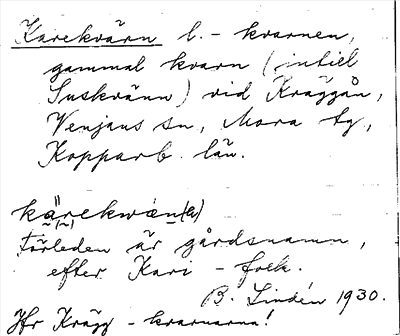 Karekvärn l. -kvarnen,
gammal kvarn (intill
Suskvärn) vid Kräggån,
Venjans sn, Mora tg,
Kopparb. län.
kärekwän(a)
Förleden är gårdsnamn,
efter Kari - folk.
B. Lindén 1930.
Jfr Krägg - kvarnarna!